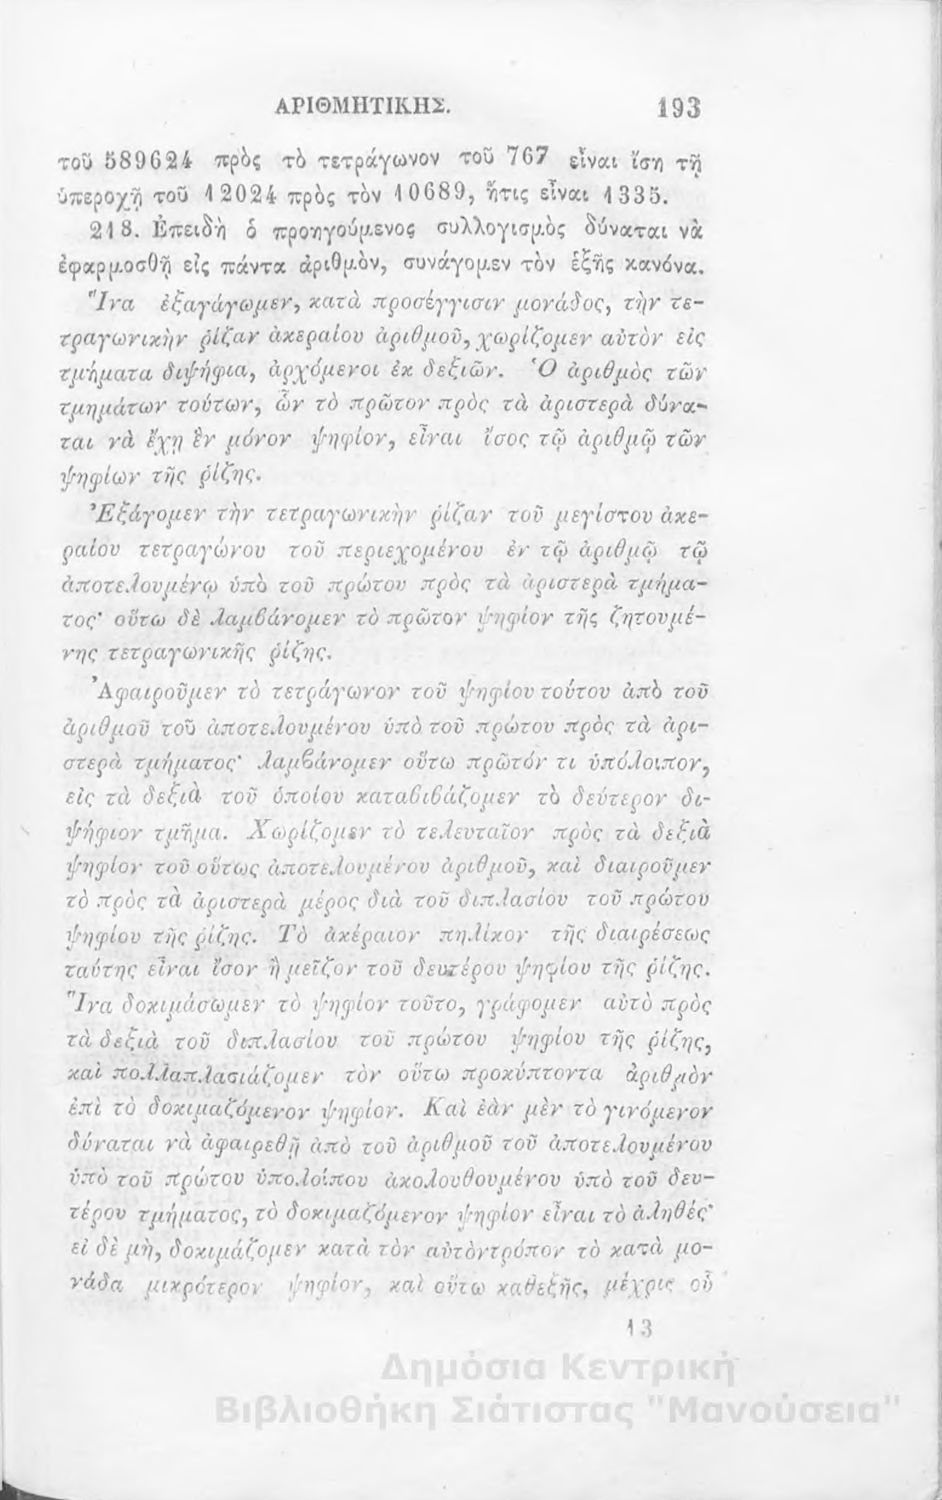 ΑΡΙΘΜΗΤΙΚΗΣ. 193
τοῦ 589624 πρὸς τὸ τετράγωνον τοῦ 767 εἶναι ἴση τῇ
ὑπεροχῇ τοῦ 12024 πρὸς τὸν 10689, ἥτις εἶναι 1335.
218. Ἐπειδὴ ὁ προηγούμενος συλλογισμὸς δύναται νὰ
ἐφαρμοσθῇ εἰς πάντα ἀριθμὸν, συνάγομεν τὸν ἑξῆς κανόνα.
Ἵνα ἐξαγάγωμεν, κατὰ προσέγγισιν μονάδος, τὴν τε-
τραγωνικὴν ῥίζαν ἀκεραίου ἀριθμοῦ, χωρίζομεν αὐτὸν εἰς
τμήματα διψήφια, ἀρχόμενοι ἐκ δεξιῶν. Ὁ ἀριθμὸς τῶν
τμημάτων τούτων, ὧν τὸ πρῶτον πρὸς τὰ ἀριστερὰ δύνα-
ται νὰ ἔχῃ ἓν μόνον ψηφίον, εἶναι ἴσος τῷ ἀριθμῷ τῶν
ψηφίων τῆς ῥίζης.
Ἐξάγομεν τὴν τετραγωνικὴν ῥίζαν τοῦ μεγίστου ἀκε-
ραίου τετραγώνου τοῦ περιεχομένου ἐν τῷ ἀριθμῷ τῷ
ἀποτελουμένῳ ὑπὸ τοῦ πρώτου πρὸς τὰ ἀριστερὰ τμήμα-
τος· οὕτω δὲ λαμβάνομεν τὸ πρῶτον ψηφίον τῆς ζητουμέ-
νης τετραγωνικῆς ῥίζης.
Ἀφαιροῦμεν τὸ τετράγωνον τοῦ ψηφίου τούτου ἀπὸ τοῦ
ἀριθμοῦ τοῦ ἀποτελουμένου ὑπὸ τοῦ πρώτου πρὸς τὰ ἀρι-
στερὰ τμήματος· λαμβάνομεν οὕτω πρῶτόν τι ὑπόλοιπον,
εἰς τὰ δεξιὰ τοῦ ὁποίου καταβιβάζομεν τὸ δεύτερον δι-
ψήφιον τμῆμα. Χωρίζομεν τὸ τελευταῖον πρὸς τὰ δεξιὰ
ψηφίον τοῦ οὕτως ἀποτελουμένου ἀριθμοῦ, καὶ διαιροῦμεν
τὸ πρὸς τὰ ἀριστερὰ μέρος διὰ τοῦ διπλασίου τοῦ πρώτου
ψηφίου τῆς ῥίζης. Τὸ ἀκέραιον πηλίκον τῆς διαιρέσεως
ταύτης εἶναι ἴσον ἢ μεῖζον τοῦ δευτέρου ψηφίου τῆς ῥίζης.
Ἵνα δοκιμάσωμεν τὸ ψηφίον τοῦτο, γράφομεν αὐτὸ πρὸς
τὰ δεξιὰ τοῦ διπλασίου τοῦ πρώτου ψηφίου τῆς ῥίζης,
καὶ πολλαπλασιάζομεν τὸν οὕτω προκύπτοντα ἀριθμὸν
ἐπὶ τὸ δοκιμαζόμενον ψηφίον. Καὶ ἐὰν μὲν τὸ γινόμενον
δύναται νὰ ἀφαιρεθῇ ἀπὸ τοῦ ἀριθμοῦ τοῦ ἀποτελουμένου
ὑπὸ τοῦ πρώτου ὑπολοίπου ἀκολουθουμένου ὑπὸ τοῦ δευ-
τέρου τμήματος, τὸ δοκιμαζόμενον ψηφίον εἶναι τὸ ἀληθές·
εἰ δὲ μὴ, δοκιμάζομεν κατὰ τὸν αὐτὸν τρόπον τὸ κατὰ μο-
νάδα μικρότερον ψηφίον, καὶ οὕτω καθεξῆς, μέχρις οὗ
13
Δημόσια Κεντρική
Βιβλιοθήκη Σιάτιστας "Μανούσεια"